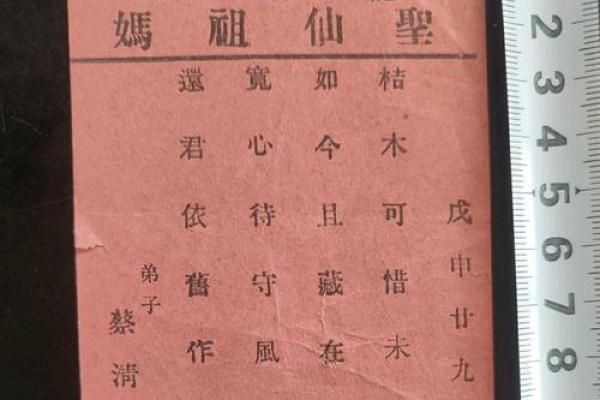 聖仙祖媽
戊申廿九
桔木可惜未
如今且藏在
寬心待守風
還君依舊作
弟子
蔡清
2
3
4
5
6
7
8